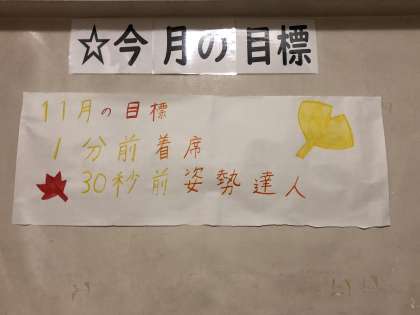 ☆今月の目標
11月の目標
1分前着席
30秒前姿勢達人